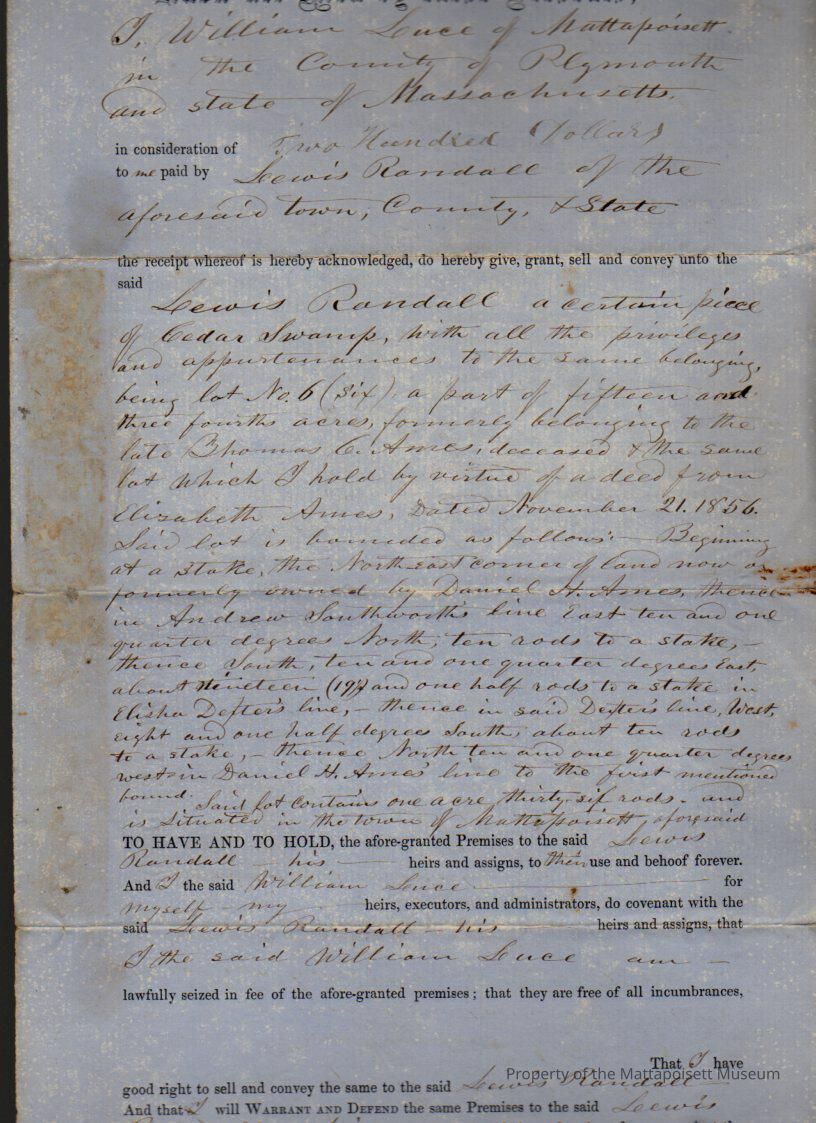 I, William Luce of Mattapoisett
in the County of Plymouth
and state of Massachusetts.
in consideration of Two Hundred Dollars
to me paid by Lewis Randall of the
aforesaid town, County, & State
the receipt whereof is hereby acknowledged, do hereby give, grant, sell and convey unto the
said
Lewis Randall a certain piece
of Cedar Swamp, with all the privileges
and appurtenances to the same belonging,
being lot No. 6 (six) a part of fifteen and
three fourths acres, formerly belonging to the
late Thomas C. Ames, deceased & the same
lot which I hold by virtue of a deed from
Elizabeth Ames, Dated November 21. 1856.
Said lot is bounded as follows:— Beginning
at a Stake, the North-east corner of land now or
formerly owned by Daniel H. Ames, thence
in Andrew Southworth's line East ten and one
quarter degrees North, ten rods to a stake,—
thence South, ten and one quarter degrees East,
about nineteen (19) and one half rods to a stake in
Elisha Dexter's line,— thence in said Dexter's line, West,
eight and one half degrees South, about ten rods
to a stake,— thence North ten and one quarter degrees
west in Daniel H. Ames' line to the first mentioned
bound. Said lot contains one acre thirty-six rods. and
is situated in the town of Mattapoisett, aforesaid
TO HAVE AND TO HOLD, the afore-granted Premises to the said Lewis
Randall — his — heirs and assigns, to their use and behoof forever.
And I the said William Luce — for
myself — my — heirs, executors, and administrators, do covenant with the
said Lewis Randall — his — heirs and assigns, that
I the said William Luce am —
lawfully seized in fee of the afore-granted premises; that they are free of all incumbrances,
That I have
good right to sell and convey the same to the said Lewis Randall
And that I will WARRANT AND DEFEND the same Premises to the said Lewis
Property of the Mattapoisett Museum